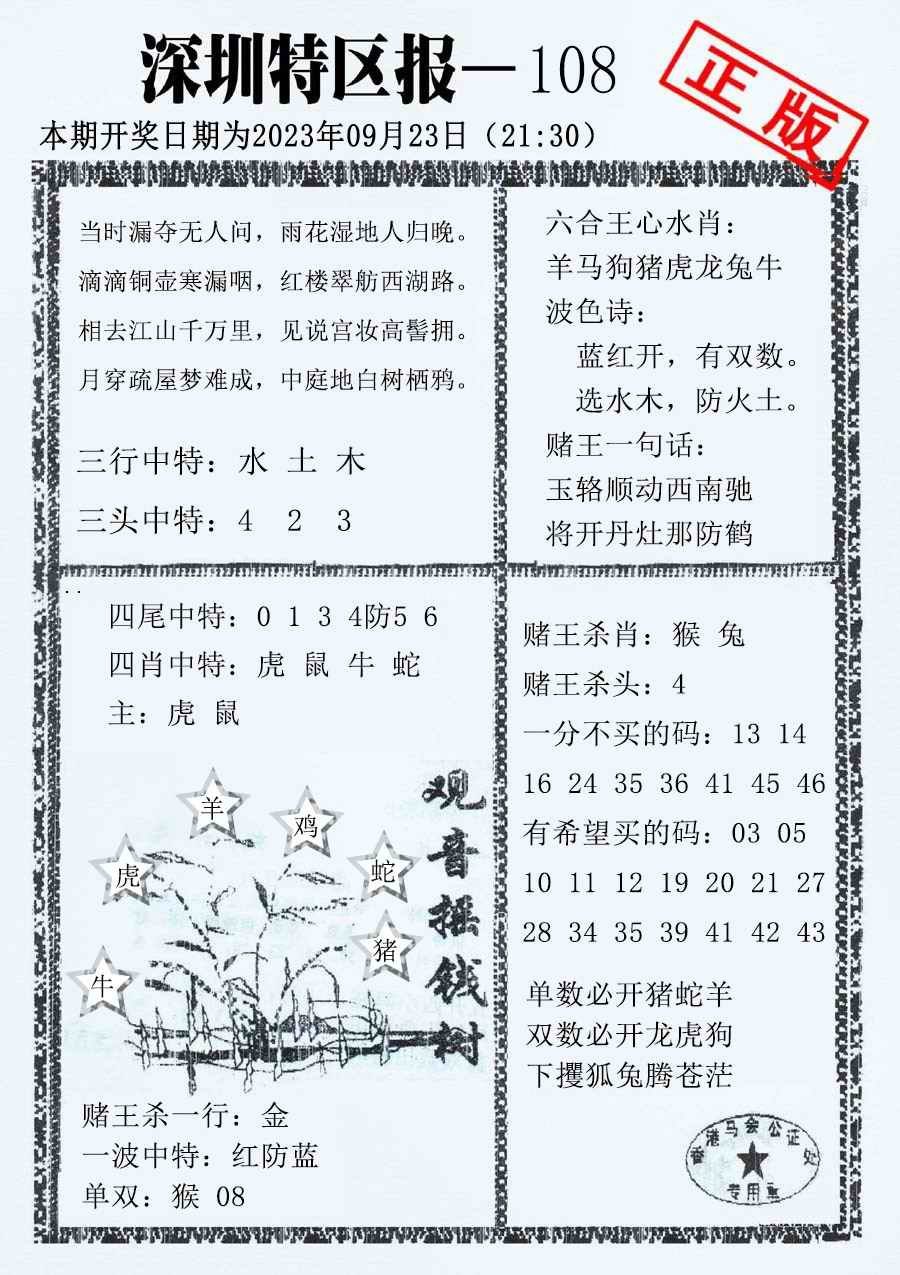 深圳特区报—108
正版
本期开奖日期为2023年09月23日（21:30）
当时漏夺无人问，雨花湿地人归晚。
滴滴铜壶寒漏咽，红楼翠舫西湖路。
相去江山千万里，见说宫妆高髻拥。
月穿疏屋梦难成，中庭地白树栖鸦。
三行中特：水 土 木
三头中特：4 2 3
六合王心水肖：
羊马狗猪虎龙兔牛
波色诗：
蓝红开，有双数。
选水木，防火土。
赌王一句话：
玉辂顺动西南驰
将开丹灶那防鹤
四尾中特：0 1 3 4防5 6
四肖中特：虎 鼠 牛 蛇
主：虎 鼠
羊
鸡
虎
蛇
猪
牛
观音摇钱树
赌王杀一行：金
一波中特：红防蓝
单双：猴 08
赌王杀肖：猴 兔
赌王杀头：4
一分不买的码：13 14
16 24 35 36 41 45 46
有希望买的码：03 05
10 11 12 19 20 21 27
28 34 35 39 41 42 43
单数必开猪蛇羊
双数必开龙虎狗
下攫狐兔腾苍茫
香港马会公证处
专用章